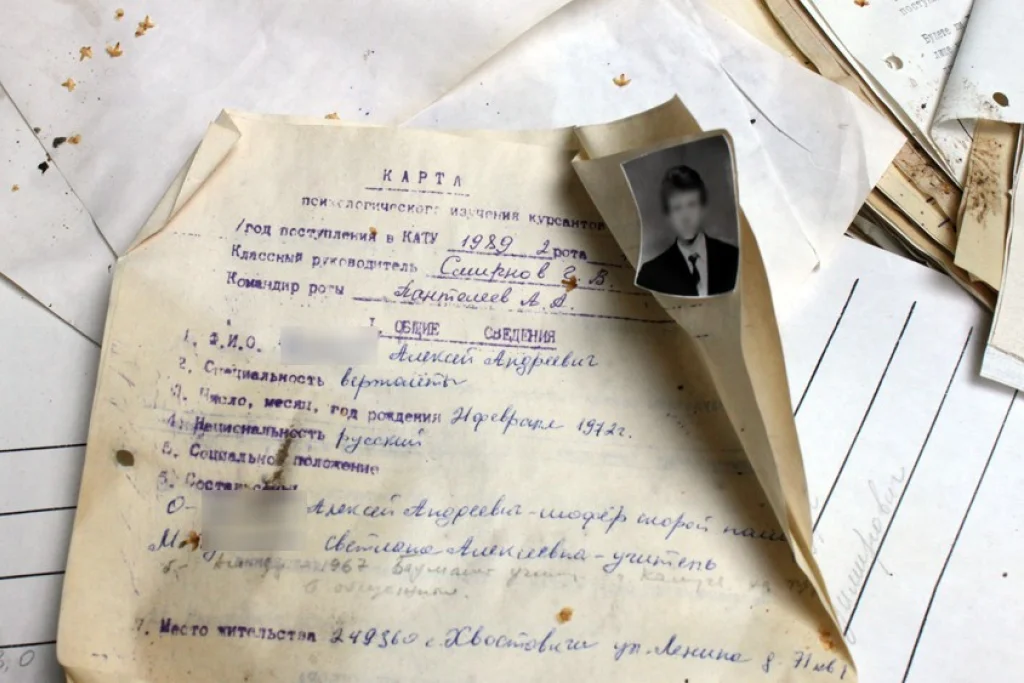 КАРТА
психологического изучения курсантов
/год поступления в КАТУ 1989 2 рота
Классный руководитель Смирнов Г. В.
Командир роты Пантелеев А. А.
I. ОБЩИЕ СВЕДЕНИЯ
1. Ф.И.О. Алексей Андреевич
2. Специальность вертолёты
3. Число, месяц, год рождения 21 февраля 1972г.
4. Национальность русский
5. Социально положение
О- Алексей Андреевич - шофёр скорой
М- Светлана Алексеевна - учитель
1967
7. Место жительства 249360 с. Хвостовичи ул. Ленина д. 71 кв 1